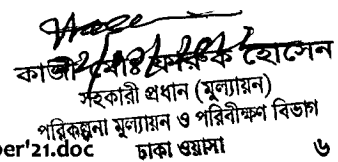 কাজী মোঃ ফারুক হোসেন
সহকারী প্রধান (মূল্যায়ন)
পরিকল্পনা মূল্যায়ন ও পরিবীক্ষণ বিভাগ
er'21.doc ঢাকা ওয়াসা ৬